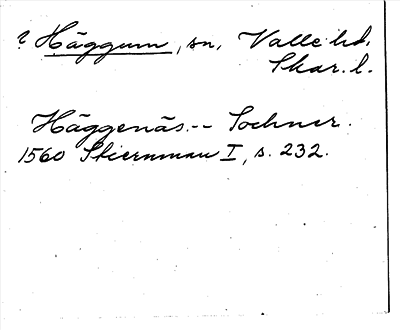 ? Häggum, sn, Valle hd.
Skar. l.
Häggenäs -- Sochner.
1560 Stiernman I, s. 232.